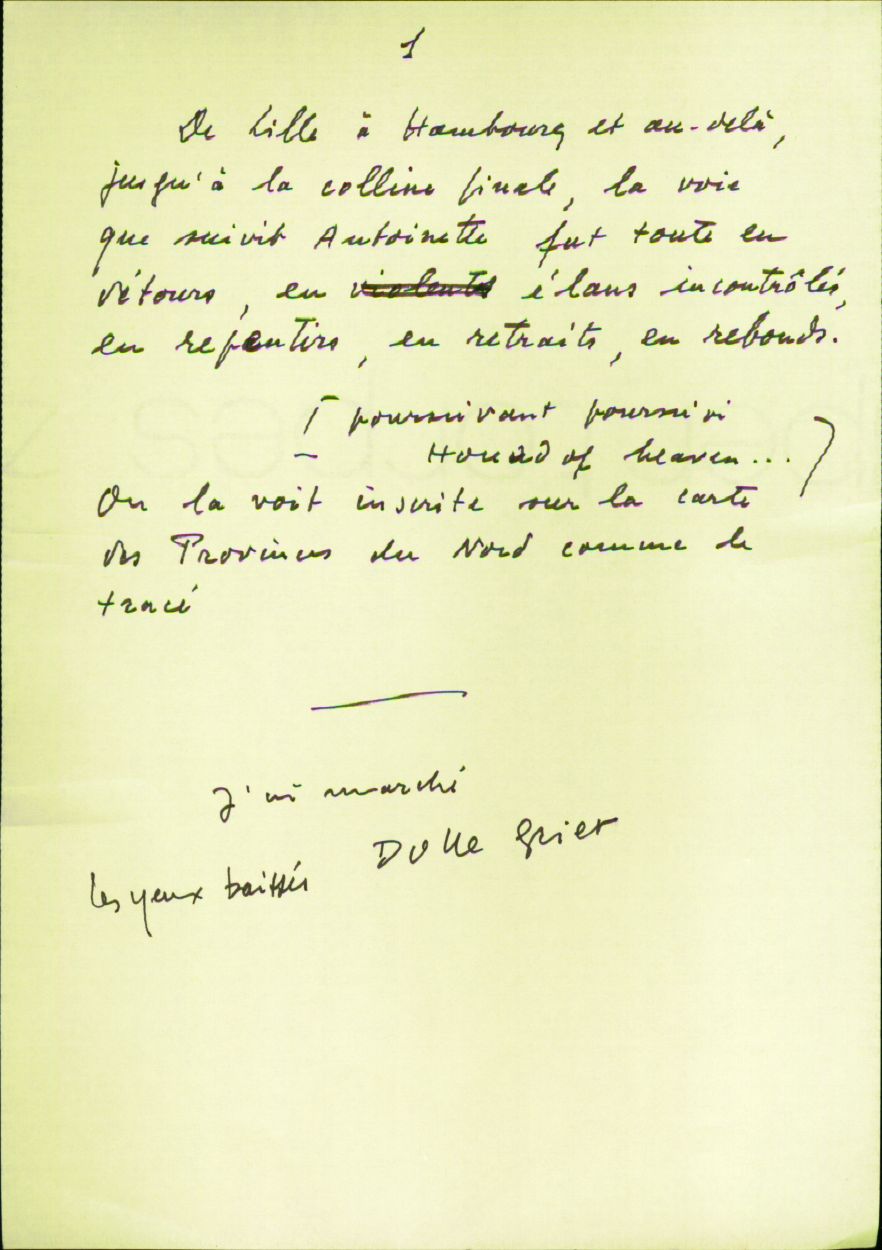 1
De Lille à Hambourg et au-delà,
jusqu'à la colline finale, la voie
que suivit Antoinette fut toute en
détours, en violents élans incontrôlés,
en repentirs, en retraits, en rebonds.
poursuivant poursuivi
Hound of heaven...
On la voit inscrite sur la carte
des Provinces du Nord comme le
tracé
J'ai marché
Dulle Griet
les yeux baissés